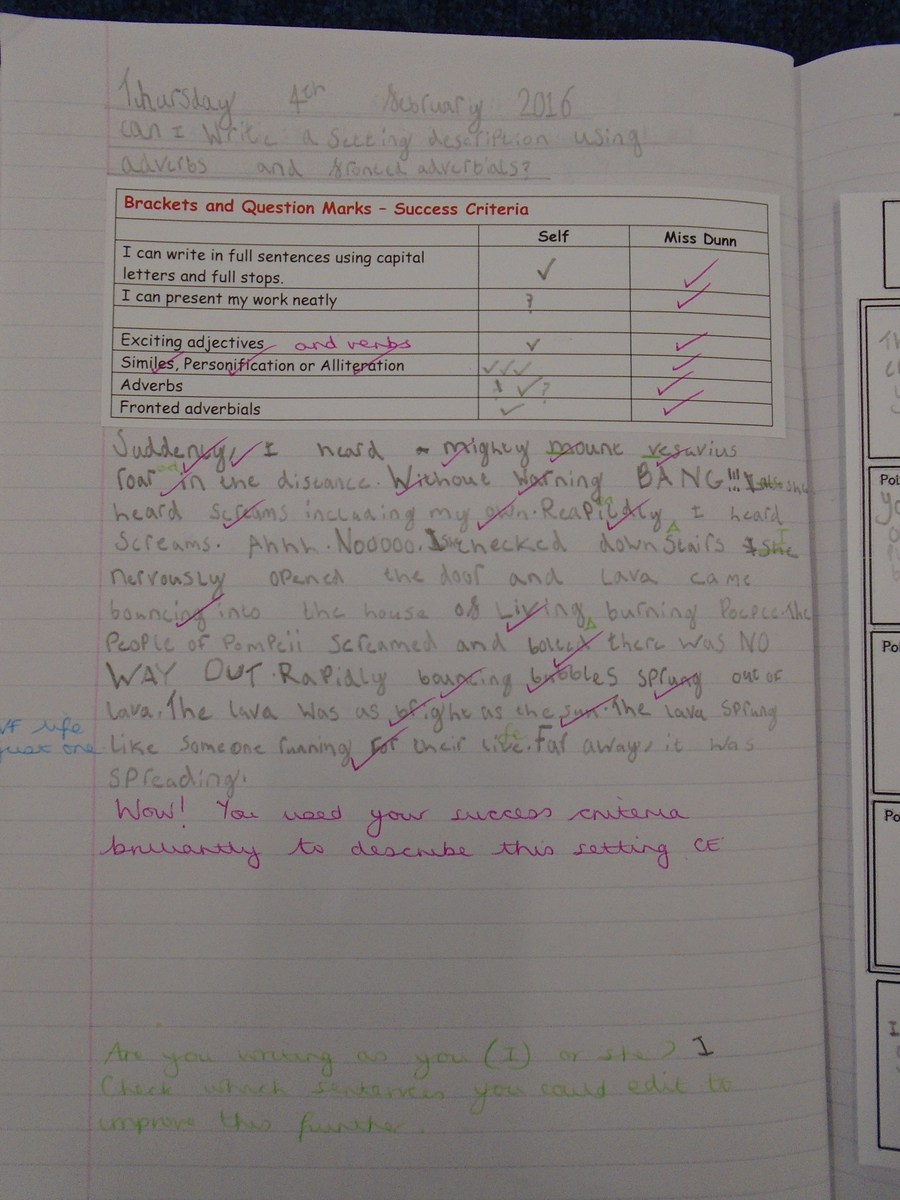 Thursday 4th February 2016
Can I write a setting description using
adverbs and fronted adverbials?
Brackets and Question Marks – Success Criteria
Self Miss Dunn
I can write in full sentences using capital
letters and full stops. ✓ ✓
I can present my work neatly ? ✓
Exciting adjectives and verbs ✓ ✓
Similes, Personification or Alliteration ✓✓✓ ✓
Adverbs ✓ ? ✓
Fronted adverbials ✓ ✓
Suddenly, I heard a mighty mount vesuvius
roar in the distance. Without warning BANG!!! she
heard screams including my own. I heard
screams. Ahhh. Nooooo. checked down stairs she I
nervously opened the door and lava came
bouncing into the house of living, burning The
People of Pompeii screamed and there was NO
WAY OUT. Rapidly bouncing bubbles sprung out of
lava. The lava was as bright as the sun. The lava sprung
life
just one
like someone running for their life. Far away, it was
spreading.
Wow! You used your success criteria
brilliantly to describe this setting CE
Are you writing as you (I) or she? I
Check which sentences you could edit to
improve this further.